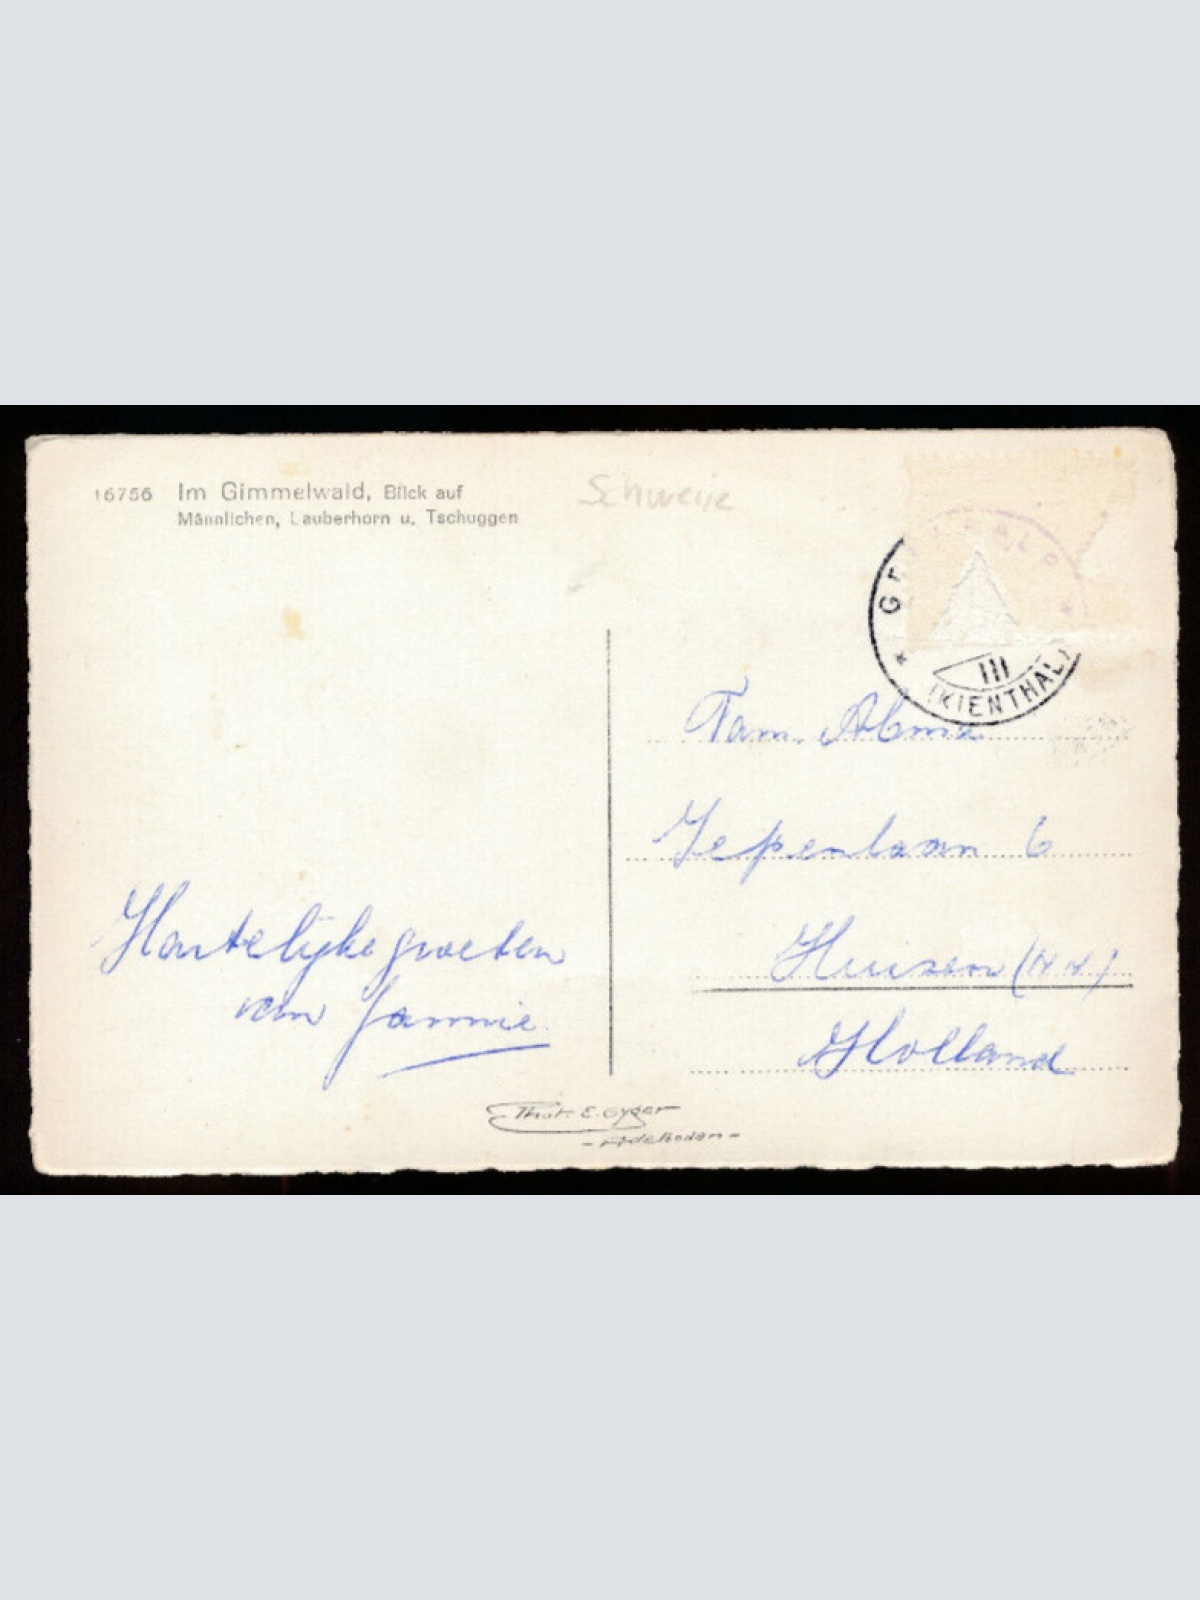 16756 Im Gimmelwald, Blick auf
Männlichen, Lauberhorn u. Tschuggen
Schweiz
(KIENTHAL)
Fam. Abma
Iepenlaan 6
Huizen (NH)
Holland
Hartelijke groeten
van Jannie
Phot. E. Gyger
- Adelboden -